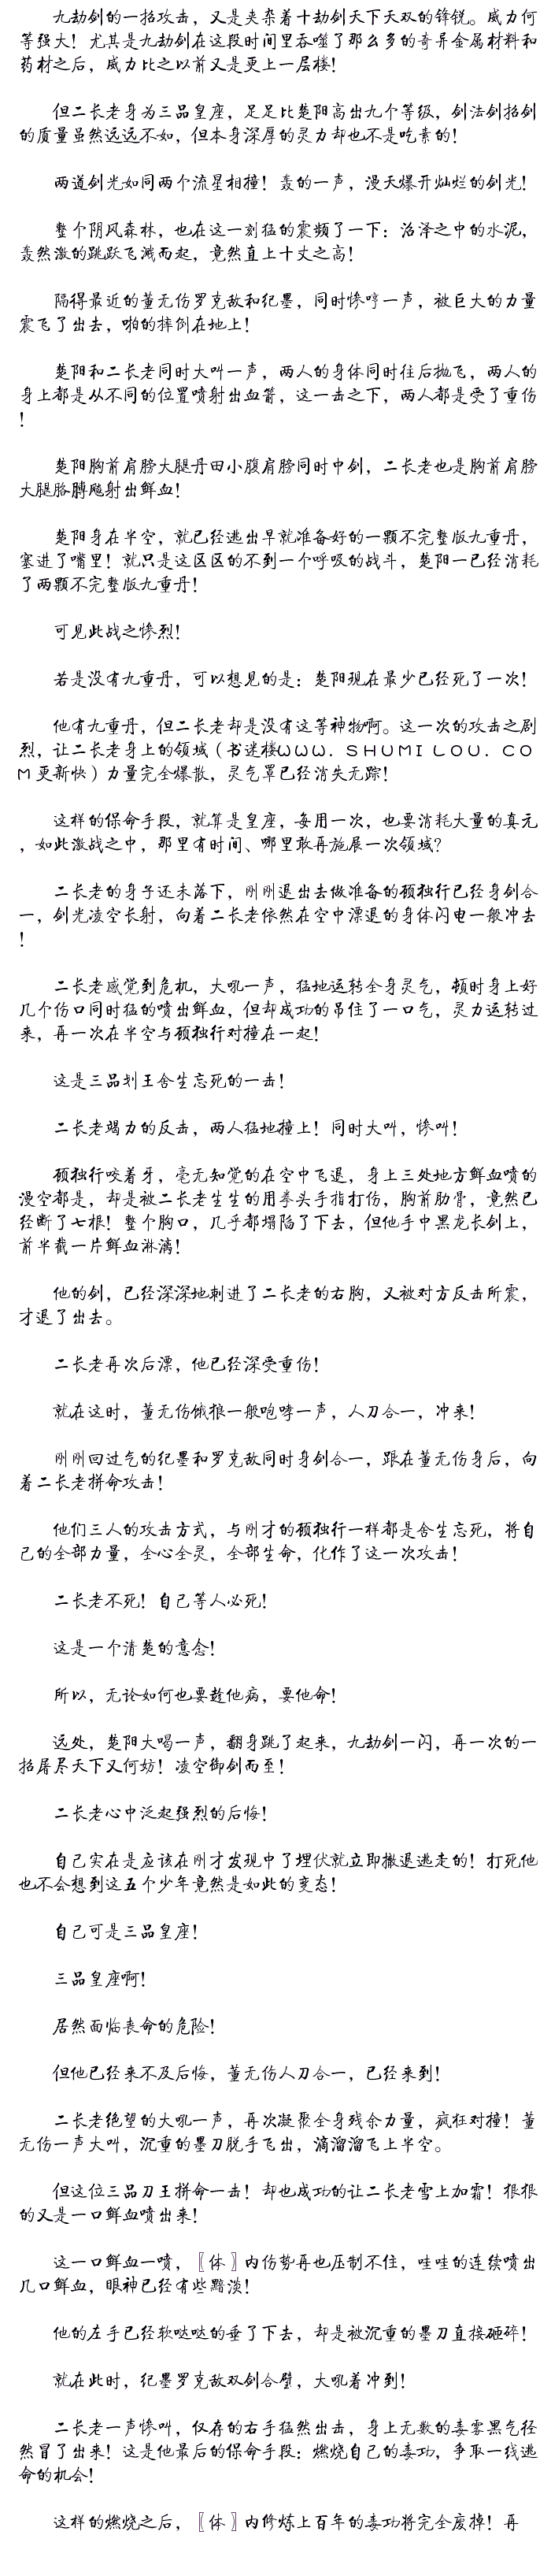 九劫剑的一招攻击，又是夹杂着十劫剑天下无双的锋锐。威力何
等强大！尤其是九劫剑在这段时间里吞噬了那么多的奇异金属材料和
药材之后，威力比之以前又是更上一层楼！
但二长老身为三品皇座，足足比楚阳高出九个等级，剑法剑招剑
的质量虽然远远不如，但本身深厚的灵力却也不是吃素的！
两道剑光如同两个流星相撞！轰的一声，漫天爆开灿烂的剑光！
整个阴风森林，也在这一刻猛的震颤了一下：沼泽之中的水泥，
轰然激的跳跃飞溅而起，竟然直上十丈之高！
隔得最近的董无伤罗克敌和纪墨，同时惨哼一声，被巨大的力量
震飞了出去，啪的摔倒在地上！
楚阳和二长老同时大叫一声，两人的身体同时往后抛飞，两人的
身上都是从不同的位置喷射出血箭，这一击之下，两人都是受了重伤
！
楚阳胸前肩膀大腿丹田小腹肩膀同时中剑，二长老也是胸前肩膀
大腿胳膊飚射出鲜血！
楚阳身在半空，就已经逃出早就准备好的一颗不完整版九重丹，
塞进了嘴里！就只是这区区的不到一个呼吸的战斗，楚阳一已经消耗
了两颗不完整版九重丹！
可见此战之惨烈！
若是没有九重丹，可以想见的是：楚阳现在最少已经死了一次！
他有九重丹，但二长老却是没有这等神物啊。这一次的攻击之剧
烈，让二长老身上的领域（书迷楼ＷＷＷ．ＳＨＵＭＩＬＯＵ．ＣＯ
Ｍ更新快）力量完全爆散，灵气罩已经消失无踪！
这样的保命手段，就算是皇座，每用一次，也要消耗大量的真元
，如此激战之中，那里有时间、哪里敢再施展一次领域？
二长老的身子还未落下，刚刚退出去做准备的顾独行已经身剑合
一，剑光凌空长射，向着二长老依然在空中漂退的身体闪电一般冲去
！
二长老感觉到危机，大吼一声，猛地运转全身灵气，顿时身上好
几个伤口同时猛的喷出鲜血，但却成功的吊住了一口气，灵力运转过
来，再一次在半空与顾独行对撞在一起！
这是三品刬王舍生忘死的一击！
二长老竭力的反击，两人猛地撞上！同时大叫，惨叫！
顾独行咬着牙，毫无知觉的在空中飞退，身上三处地方鲜血喷的
漫空都是，却是被二长老生生的用拳头手指打伤，胸前肋骨，竟然已
经断了七根！整个胸口，几乎都塌陷了下去，但他手中黑龙长剑上，
前半截一片鲜血淋漓！
他的剑，已经深深地刺进了二长老的右胸，又被对方反击所震，
才退了出去。
二长老再次后漂，他已经深受重伤！
就在这时，董无伤饿狼一般咆哮一声，人刀合一，冲来！
刚刚回过气的纪墨和罗克敌同时身剑合一，跟在董无伤身后，向
着二长老拼命攻击！
他们三人的攻击方式，与刚才的顾独行一样都是舍生忘死，将自
己的全部力量，全心全灵，全部生命，化作了这一次攻击！
二长老不死！自己等人必死！
这是一个清楚的意念！
所以，无论如何也要趁他病，要他命！
远处，楚阳大喝一声，翻身跳了起来，九劫剑一闪，再一次的一
招屠尽天下又何妨！凌空御剑而至！
二长老心中泛起强烈的后悔！
自己实在是应该在刚才发现中了埋伏就立即撤退逃走的！打死他
也不会想到这五个少年竟然是如此的变态！
自己可是三品皇座！
三品皇座啊！
居然面临丧命的危险！
但他已经来不及后悔，董无伤人刀合一，已经来到！
二长老绝望的大吼一声，再次凝聚全身残余力量，疯狂对撞！董
无伤一声大叫，沉重的墨刀脱手飞出，滴溜溜飞上半空。
但这位三品刀王拼命一击！却也成功的让二长老雪上加霜！狠狠
的又是一口鲜血喷出来！
这一口鲜血一喷，〖体〗内伤势再也压制不住，哇哇的连续喷出
几口鲜血，眼神已经有些黯淡！
他的左手已经软哒哒的垂了下去，却是被沉重的墨刀直接砸碎！
就在此时，纪墨罗克敌双剑合璧，大吼着冲到！
二长老一声惨叫，仅存的右手猛然出击，身上无数的毒雾黑气径
然冒了出来！这是他最后的保命手段：燃烧自己的毒功，争取一线逃
命的机会！
这样的燃烧之后，〖体〗内修炼上百年的毒功将完全废掉！再